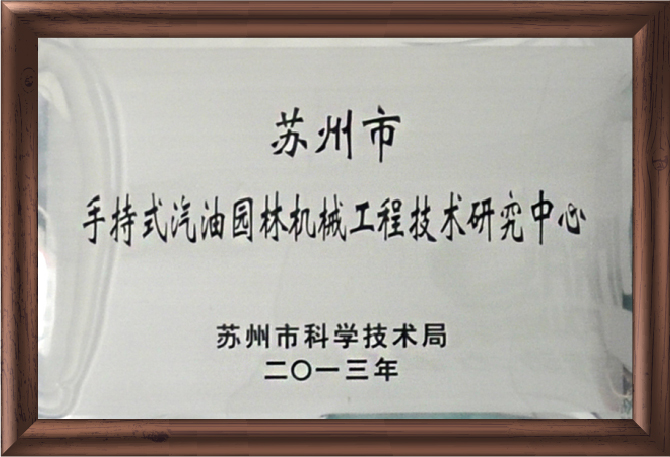 苏州市
手持式汽油园林机械工程技术研究中心
苏州市科学技术局
二〇一三年